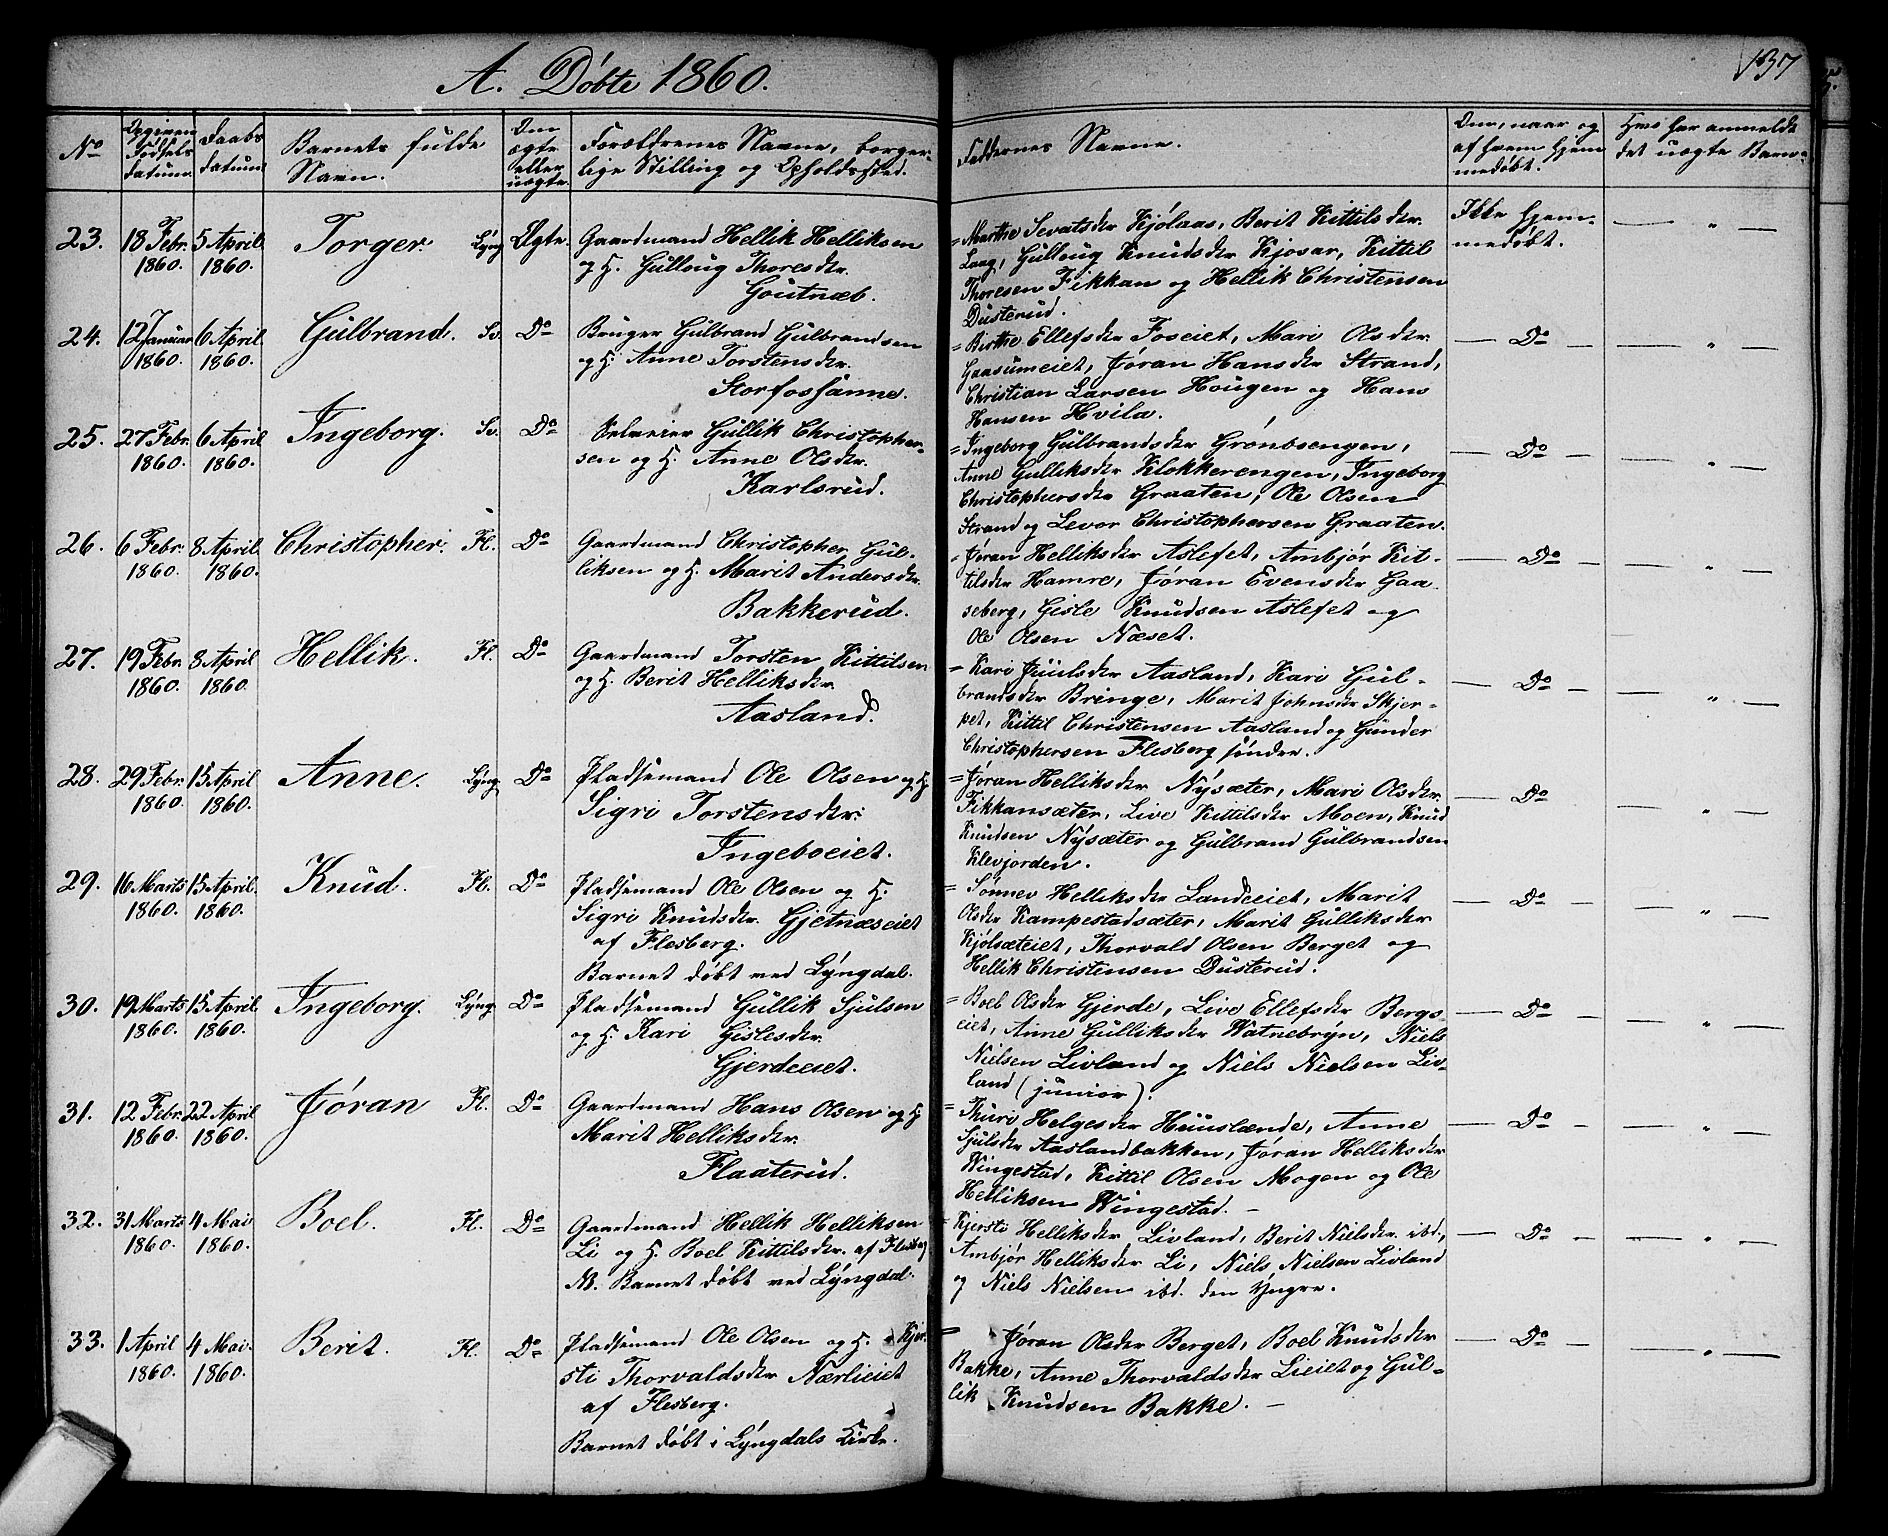 A. Døbte 1860.
137
No
Opgiven Fødsels datum.
Daabs datum.
Barnets fulde Navn.
Om ægte eller uægte.
Forældrenes Navne, borger-
lige Stilling og Opholdssted.
Faddernes Navne.
Om, naar og
af hvem hjem
medøbt.
Hvo har anmeldt
det uægte Barn.
23. 18 Febr. 1860. 5 April 1860. Torger. Lyng Ægte.
Gaardmand Hellik Helliksen
og H. Gulloug Thoresdr.
Goutnæb.
= Marthe Sevatsdr Kjølaas, Berit Kittilsdr.
Laag, Gulloug Knudsdr Kjosar, Kittil
Thoresen Fikkan og Hellik Christensen
Dusterud.
Ikke hjem-
medøbt.
— " —
24. 12 Januar 1860. 6 April 1860. Gulbrand. Sv. Do
Bruger Gulbrand Gulbrandsen
og H. Anne Torstensdr.
Storfossønne.
= Birthe Ellefsdr Foseiet, Mari Olsdr.
Gaasumeiet, Jøran Hansdr Strand,
Christian Larsen Hougen og Hans
Hansen Hvila.
— Do —
— " —
25. 27 Febr. 1860. 6 April 1860. Ingeborg. Sv. Do
Selveier Gullik Christopher-
sen og H. Anne Olsdr.
Karlsrud.
= Ingeborg Gulbrandsdr Grønbsengen,
Anne Gulliksdr Klokkerengen, Ingeborg
Christophersdr Graaten, Ole Olsen
Strand og Levor Christophersen Graaten.
— Do —
— " —
26. 6 Febr. 1860. 8 April. 1860. Christopher. Fl. Do
Gaardmand Christopher Gul-
liksen og H. Marit Andersdr.
Bakkerud.
= Jøran Helliksdr Aslefet, Ambjør Kit-
tilsdr Hamre, Jøran Evensdr Gaa-
seberg, Gisle Knudsen Aslefet og
Ole Olsen Næset.
— Do —
— " —
27. 19 Febr. 1860. 8 April 1860. Hellik. Fl. Do
Gaardmand Torsten Kittilsen
og H. Berit Helliksdr.
Aasland.
= Kari Juulsdr Aasland, Kari Gul-
brandsdr Bringe, Marit Johnsdr Skjer-
pet, Kittil Christensen Aasland og Gunder
Christophersen Flesberg søndre.
— Do —
— " —
28. 29 Febr. 1860. 15 April 1860. Anne. Lyng. Do
Pladsemand Ole Olsen og H.
Sigri Torstensdr.
Ingeboeiet.
= Jøran Helliksdr Nysæter, Mari Olsdr.
Fikkansæter, Live Kittilsdr Moen, Knud
Knudsen Nysæter og Gulbrand Gulbrandsen
Klevjorden.
— Do —
— " —
29. 16 Marts 1860. 15 April. 1860. Knud. Fl. Do
Pladsemand Ole Olsen og H.
Sigri Knudsdr. Gjetnæseiet
af Flesberg.
Barnet døbt ved Lyngdal.
= Sønnev Helliksdr Landeeiet, Marit
Olsdr Kampestadsæter, Marit Gulliksdr
Kjølsæteiet, Thorvald Olsen Berget og
Hellik Christensen Dusterud.
— Do —
— " —
30. 19 Marts 1860. 15 April. 1860. Ingeborg. Lyng. Do
Pladsemand Gullik Sjulsen
og H. Kari Gislesdr.
Gjerdeeiet.
= Boel Olsdr Gjerde, Live Ellefsdr Bergs-
eiet, Anne Gulliksdr Watnebryn, Niels
Nielsen Livland og Niels Nielsen Liv-
land (junior).
— Do —
— " —
31. 12. Febr. 1860. 22 April 1860. Jøran Fl. Do
Gaardmand Hans Olsen og H.
Marit Helliksdr.
Flaaterud.
= Thuri Helgesdr Huuslænde, Anne
Sjulsdr Aaslandbakken, Jøran Helliksdr
Wingestad, Kittil Olsen Mogen og Ole
Helliksen Wingestad. —
— Do —
— " —
32. 31 Marts 1860. 4 Mai 1860. Boel. Fl. Do
Gaardmand Hellik Helliksen
Li og H. Boel Kittilsdr. af Flesberg
NB. Barnet døbt ved Lyngdal.
Kjersti Helliksdr Livland, Berit Nielsdr. ibd.,
Ambjør Helliksdr Li, Niels Nielsen Livland
og Niels Nielsen ibd. den Yngre.
— Do —
— " —
33. 1 April 1860. 4 Mai. 1860. Berit. Fl. Do
Pladsemand Ole Olsen og H. Kjer-
sti Thorvaldsdr Nærlieiet
af Flesberg.
Barnet døbt i Lyngdals Kirke.
= Jøran Olsdr Berget, Boel Knudsdr
Bakke, Anne Thorvaldsdr Lieiet og Gul-
lik Knudsen Bakke. —
— Do —
— " —